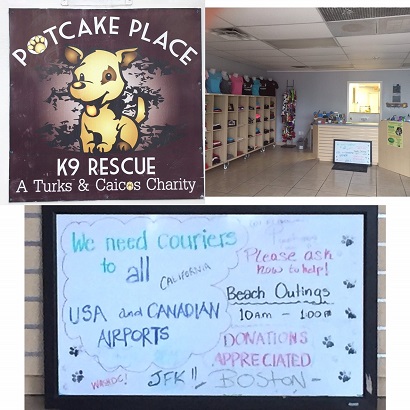 POTCAKE PLACE
K9 RESCUE
A Turks & Caicos Charity
We need couriers
to all
CALIFORNIA
USA and CANADIAN
AIRPORTS
Please ask
how to help!
Beach Outings
10am - 1:00pm
DONATIONS
APPRECIATED
JFK!! BOSTON -